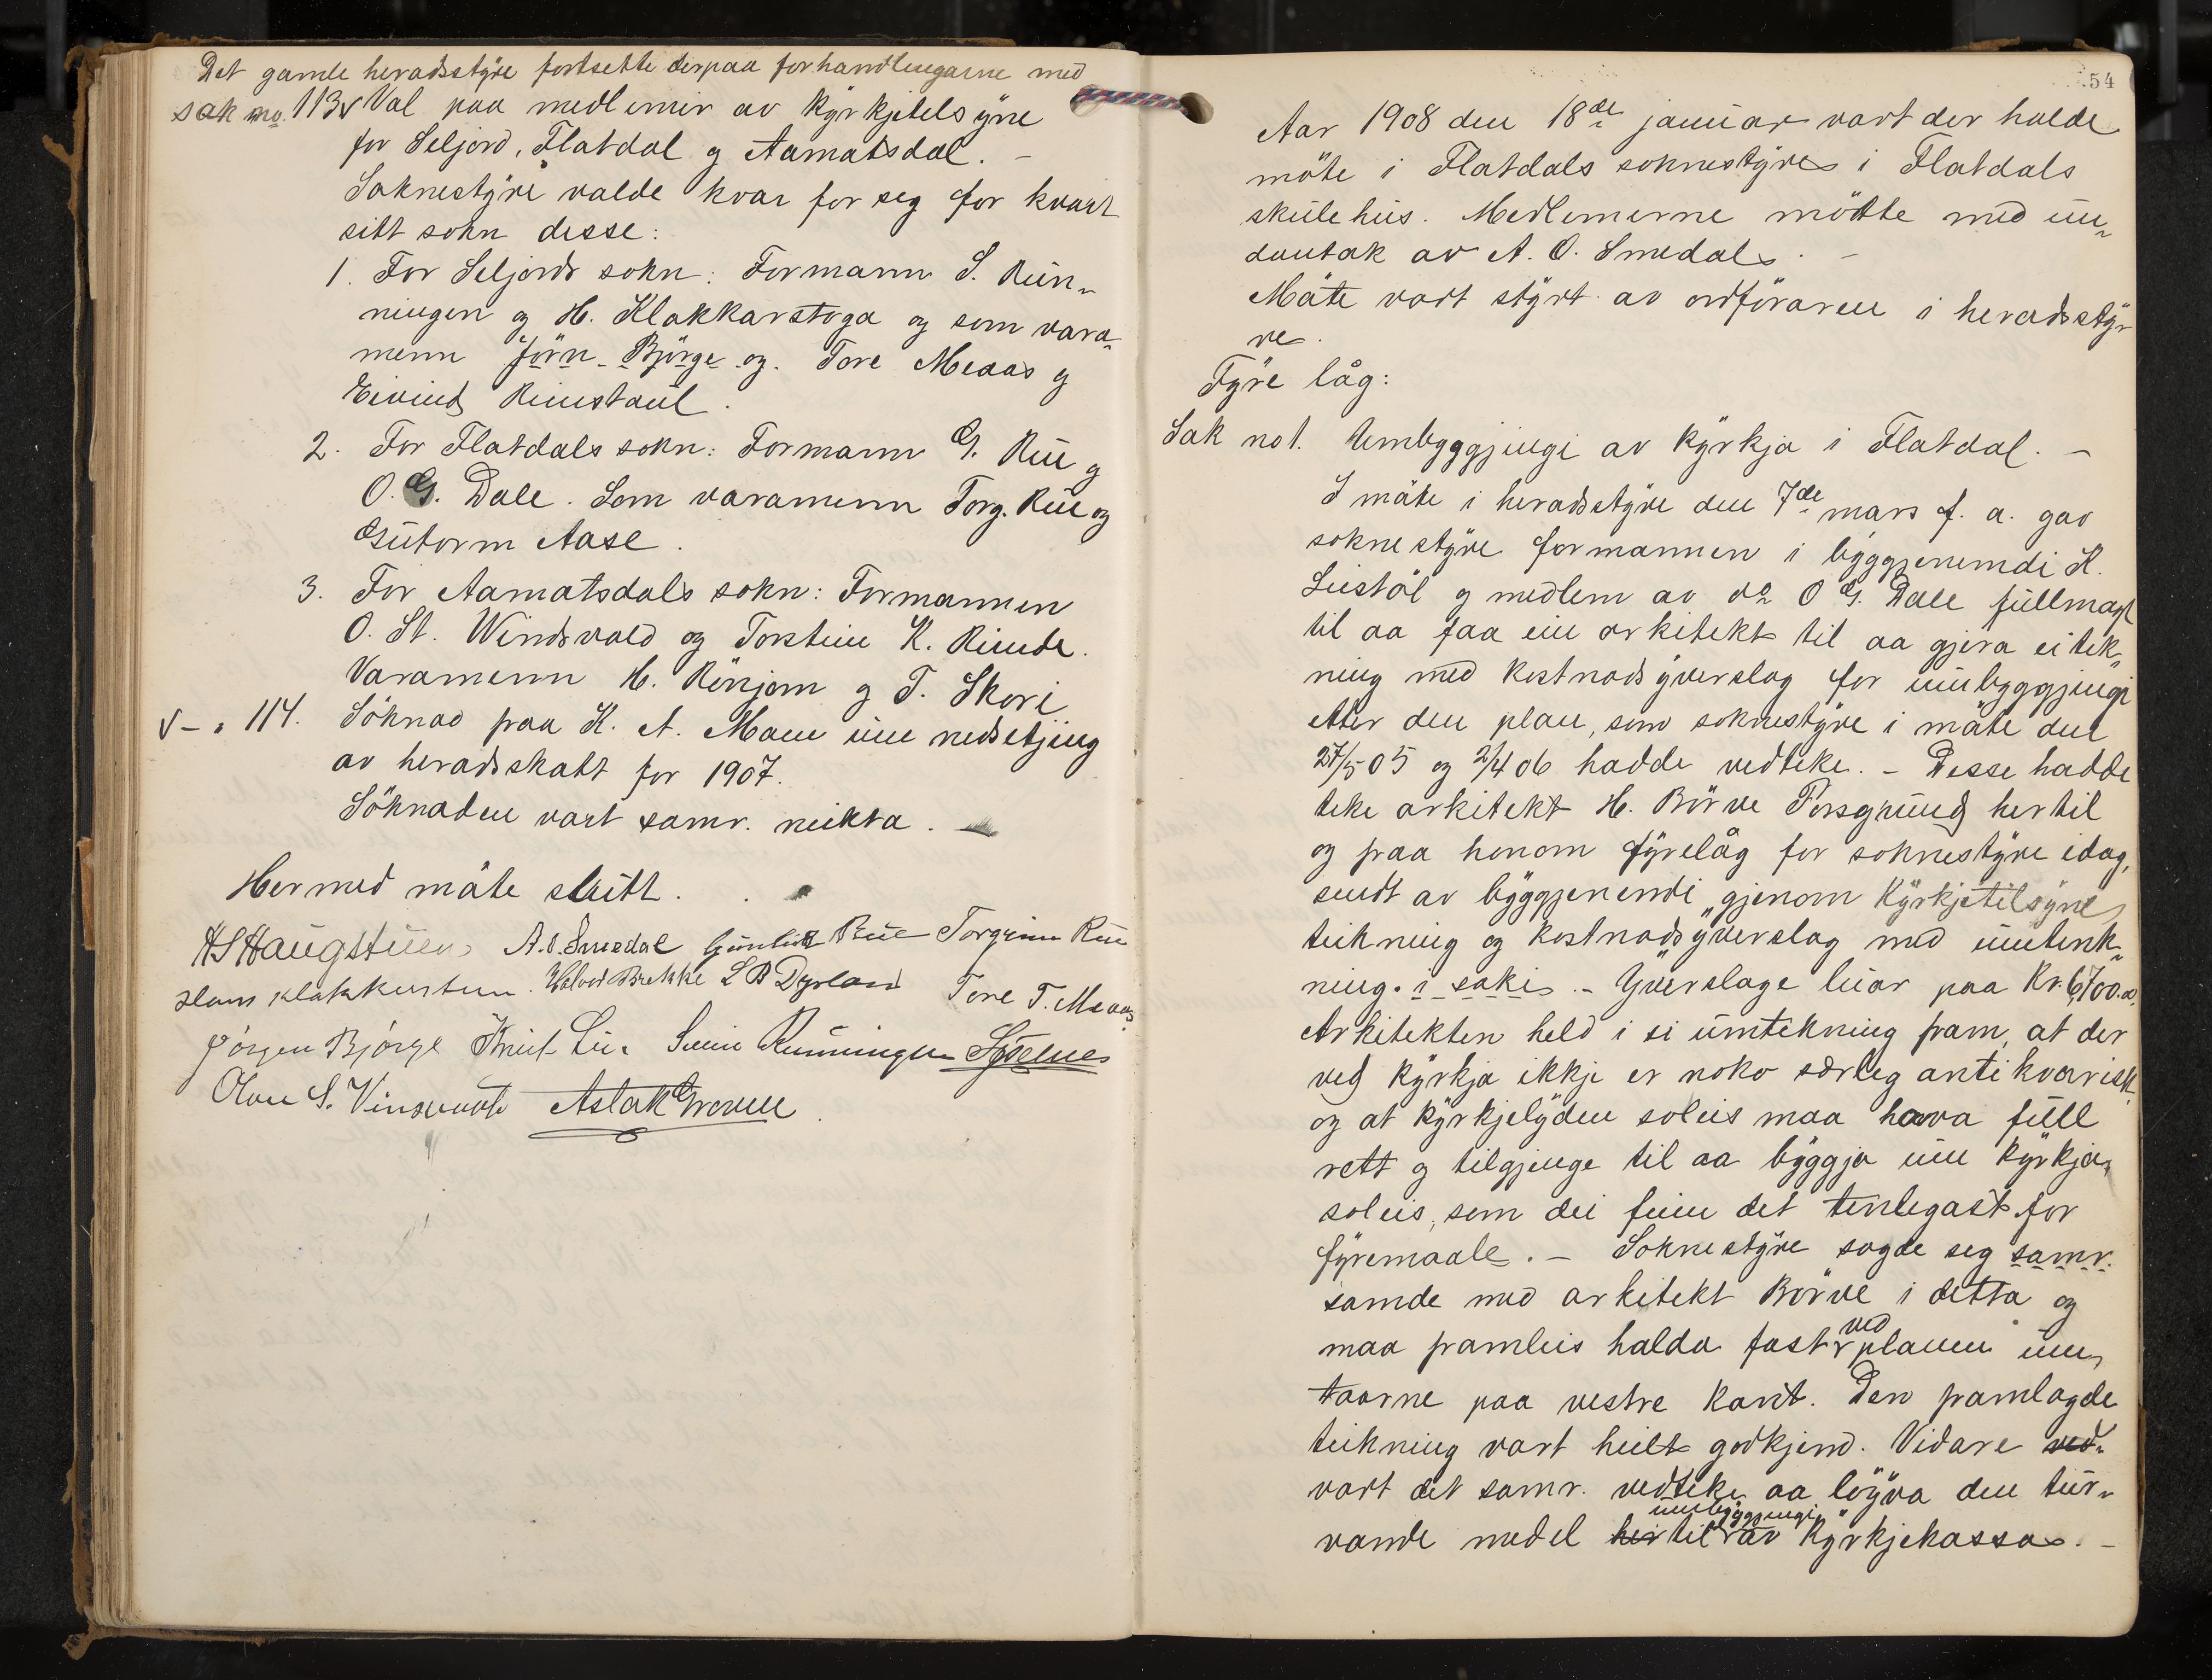 Det gamle heradsstýre fortsette derpaa forhandlingarne med
sak no. 113 Val paa medlemir av kýrkjetelsýne
for Seljord, Flatdal og Aamatsdal. –
Soknestýre valde kvar for seg for kvart
sitt sokn desse:
1. For Seljords sokn: Formann S. Rün-
ningen og H. Klakkarstoga og som vara-
menn Jörn Björge og Tore Meaas og
Eivind Rinustaül.
2. For Flatdals sokn: Formann G. Rüe og
O. G. Dale. Som varamenn Torg. Rüe og
Gütorm Aase.
3. For Aamatsdals sokn: Formannen
O. St. Windsvald og Torstein K. Rinde.
Varamenn H. Rönjom og T. Skori
– " 114. Söknad paa K. A. Moen üm nedsetjing
av heradsskatt for 1907.
Söknaden vart samr. neikta. –
Hermed möte slütt.
HSHaugstuen A.O. Smedal Günleik Rüe Torgrim Rue
Hans Klakkerstuen Halvor Brekke L B Dyrland Tore T. Meaas
Jörgen Björge Knüt Lie Svein Rünningen
Olav S. Vinsvaal Aslak Groven
54
Aar 1908 den 18de januar vart der halde
möte i Flatdals soknestýre i Flatdals
skülehüs. Medlemerne mötte med ün-
dantak av A. O. Smedal. –
Möte vart stýrt av ordföraren i heradsstýr-
re.
Fýre låg:
Sak no 1. Umbýggjingi av kýrkja i Flatdal. –
I möte i heradsstýre den 7de mars f. a. gav
soknestýre formannen i býggjenemdi K.
Liestöl og medlem av do O G. Dale füllmagt
til aa faa ein arkitekt til aa gjera ei teik-
ning med kostnadsýverslag for ümbýggjingi
etter den plan, som soknestýre i möte den
27/5 05 og 2/4 06 hadde vedteke. – Desse hadde
teke arkitekt H. Börve Porsgründ hertil
og fraa honom fýrelåg for soknestýre idag,
sendt av býggjenemdi "gjenom kýrkjetilsýne
teikning og kostnadsýverslag med ümtenk-
ning i saki. – Ýverslage lüar paa Kr. 6700.00
Arkitekten held i si ümtekning fram, at der
ved kýrkja ikkje er noko særleg antikvarisk
og at kýrkjelýden soleis maa hava füll
rett og tilgjenge til aa býggja üm kýrkja,
soleis, som dei finn det tenlegast for
fýremaale. – Soknestýre sagde seg samr.
samde med arkitekt Börve i detta og
maa framleis halda fast ved planen üm
taarne paa vestre kant. Den framlagde
teikning vart heilt godkjend. Vidare ved-
vart det samr. vedteke aa löýva den tür-
vande medel her til ümbýggjingi av kýrkjekassa. –